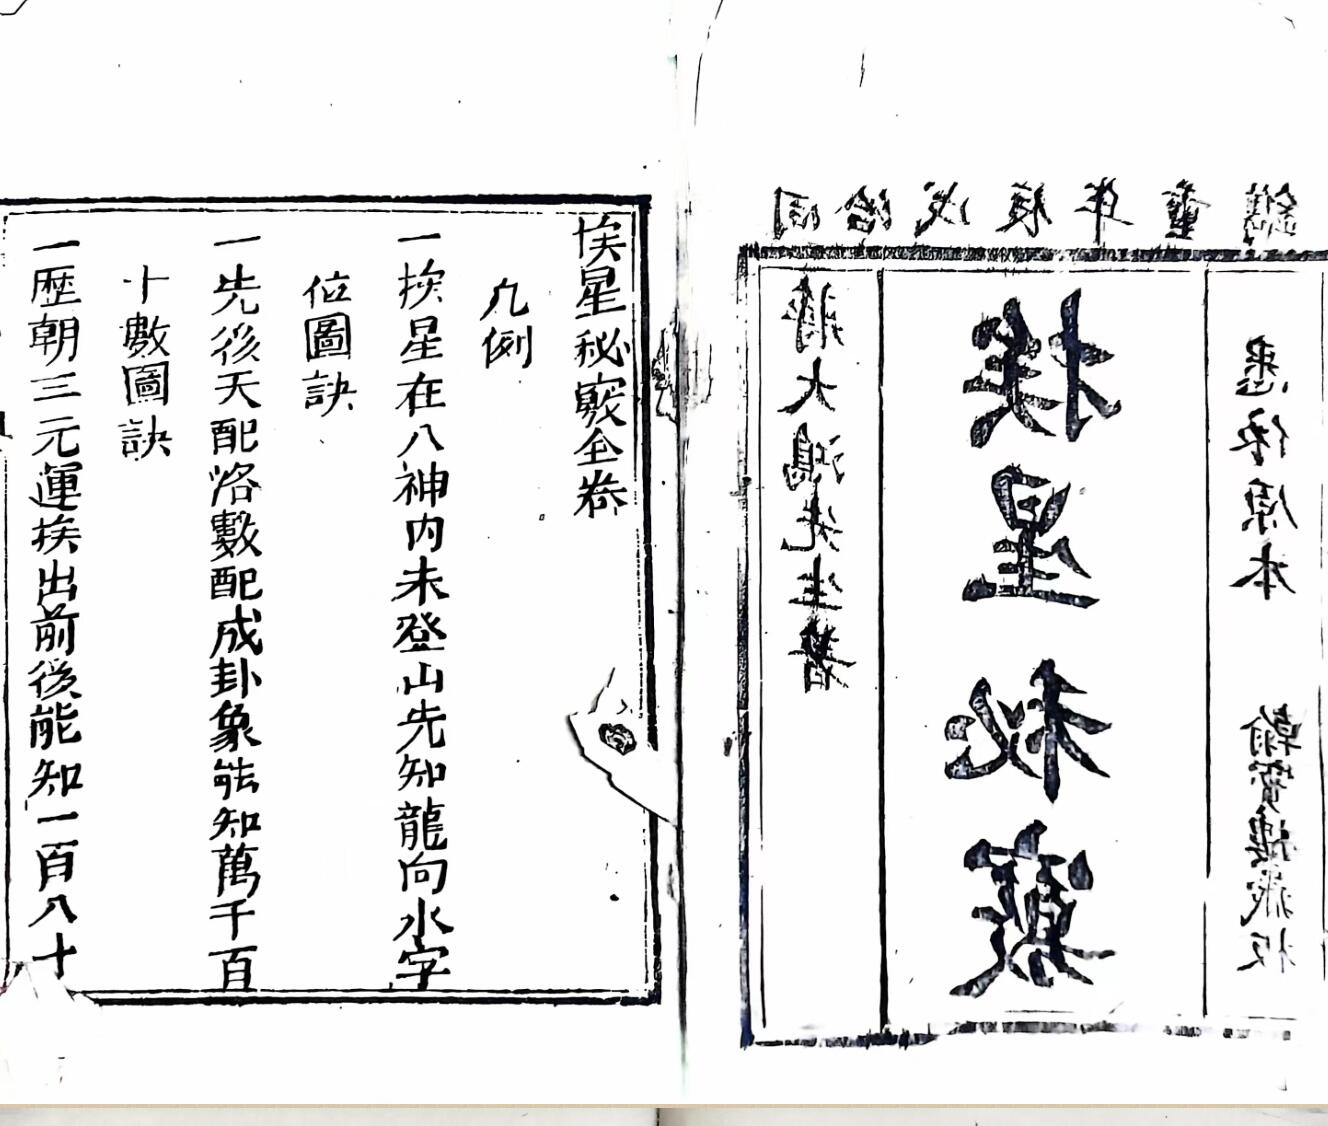 同治戊辰年重鐫
蔣大鴻先生著
挨星秘竅
悉依原本 翰寶樓藏板
挨星秘竅全卷
凡例
一挨星在八神內未登山先知龍向水字
位圖訣
一先後天配洛數配成卦象能知萬千百
十數圖訣
一歷朝三元運挨出前後能知一百八十